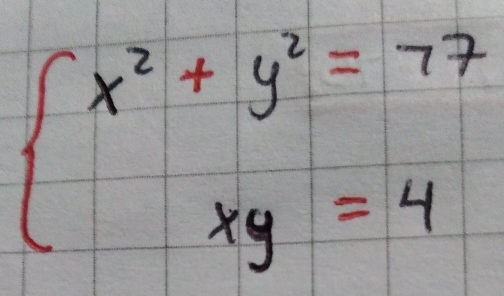 x² + y² = 17
xy = 4